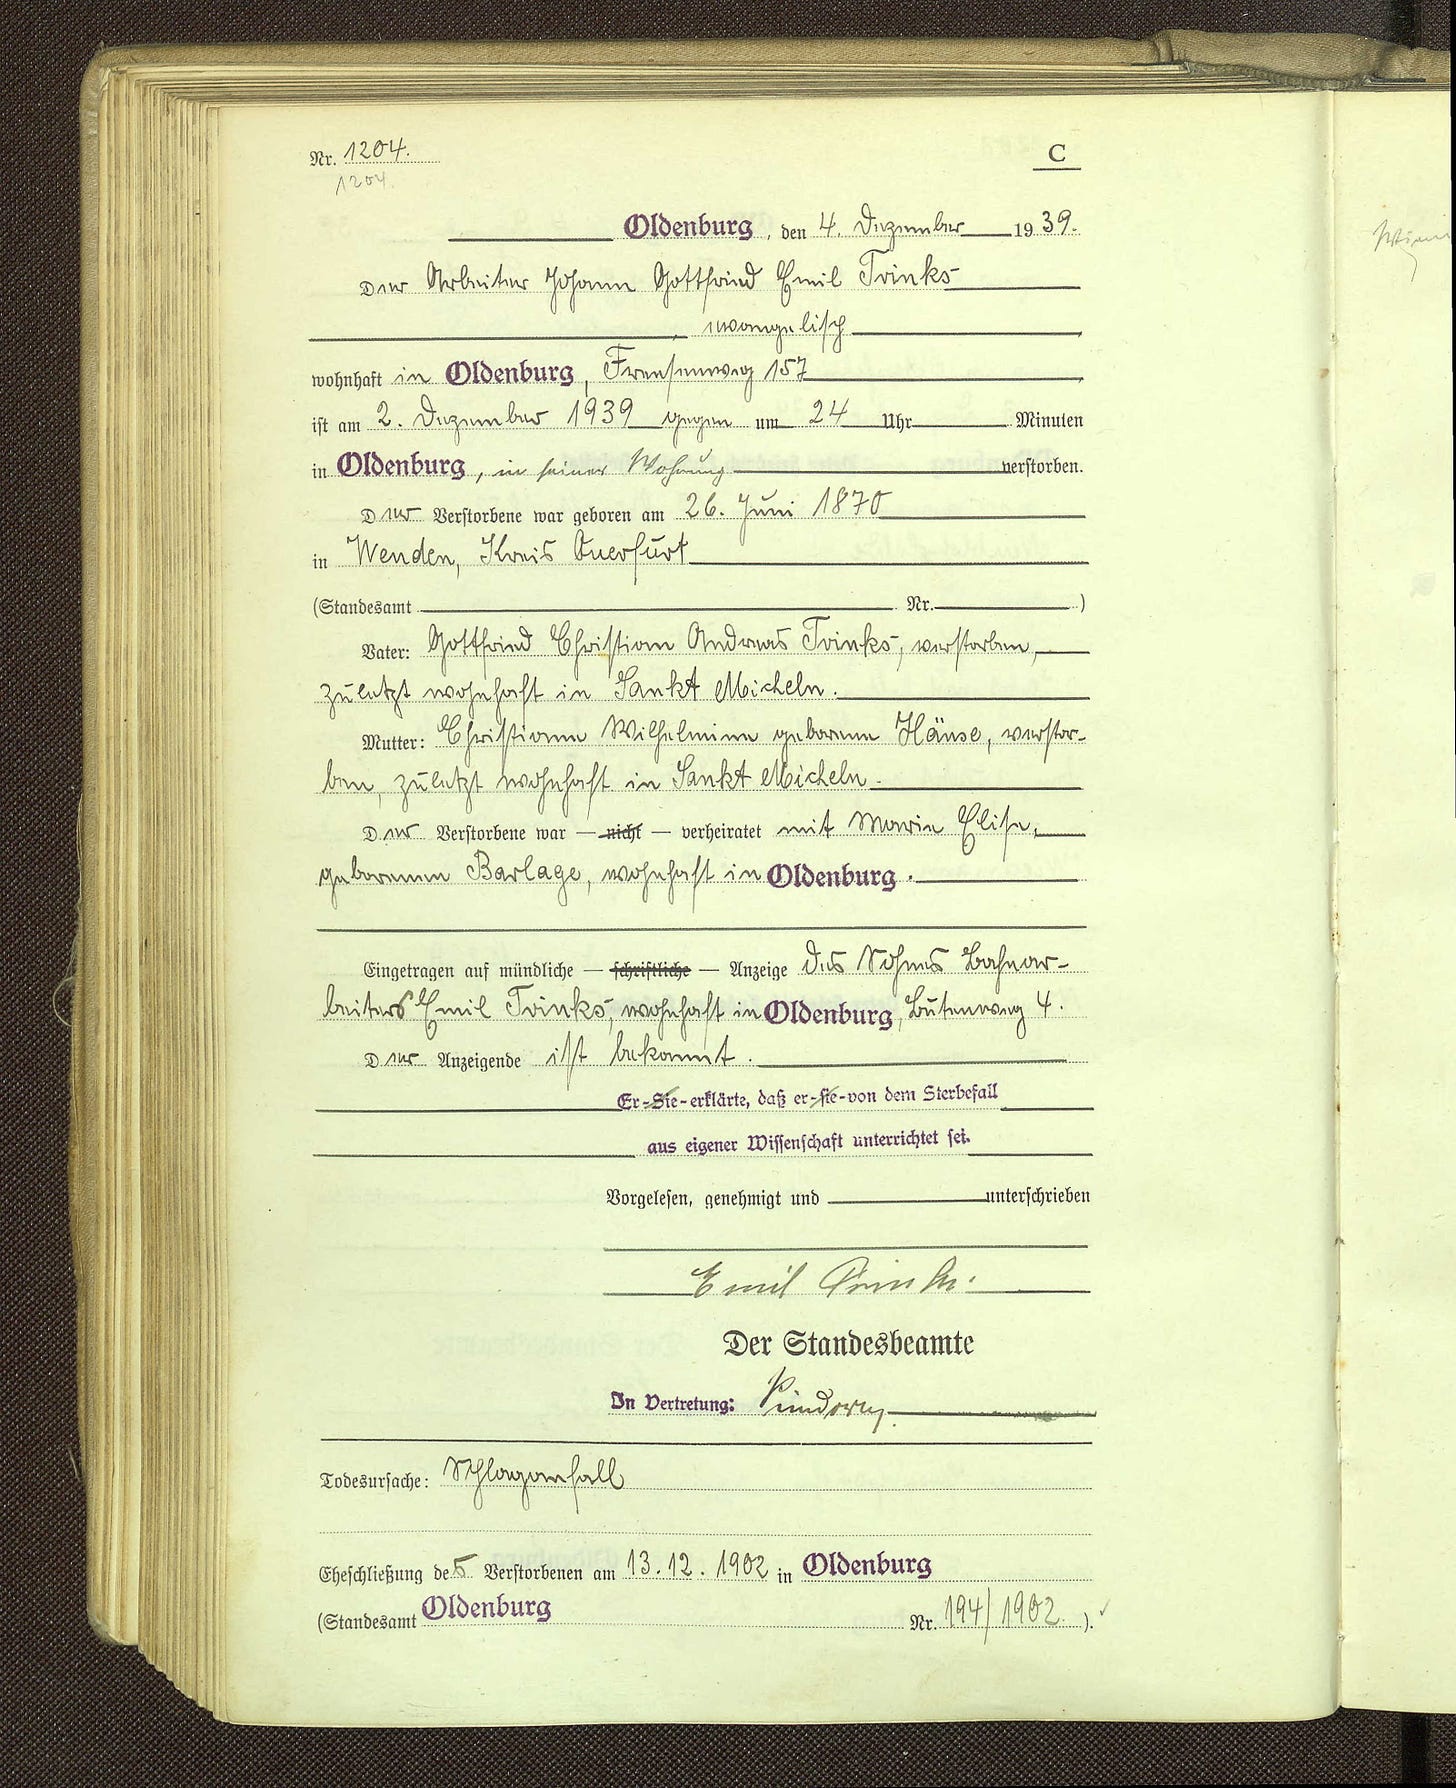 Nr. 1204.
1204.
C
Oldenburg, den 4. Dezember 1939.
Der Arbeiter Johann Gottfried Emil Trinks
evangelisch
wohnhaft in Oldenburg, Friesenweg 157
ist am 2. Dezember 1939 gegen um 24 Uhr Minuten
in Oldenburg, in seiner Wohnung verstorben.
Der Verstorbene war geboren am 26. Juni 1870
in Wenden, Kreis Querfurt
(Standesamt Nr. )
Vater: Gottfried Christian Andreas Trinks, verstorben,
zuletzt wohnhaft in Sankt Micheln.
Mutter: Christiane Wilhelmine geborene Häuse, verstor-
ben, zuletzt wohnhaft in Sankt Micheln.
Der Verstorbene war — nicht — verheiratet mit Marie Elise,
geborenen Barlage, wohnhaft in Oldenburg.
Eingetragen auf mündliche — schriftliche — Anzeige des Sohnes Bahnar-
beiters Emil Trinks, wohnhaft in Oldenburg, Butenweg 4.
Der Anzeigende ist bekannt.
Er-Sie-erklärte, daß er-sie-von dem Sterbefall
aus eigener Wissenschaft unterrichtet sei.
Vorgelesen, genehmigt und unterschrieben
Emil Trinks.
Der Standesbeamte
In Vertretung:
Todesursache: Schlaganfall
Eheschließung des Verstorbenen am 13.12.1902 in Oldenburg
(Standesamt Oldenburg Nr. 194/1902.).